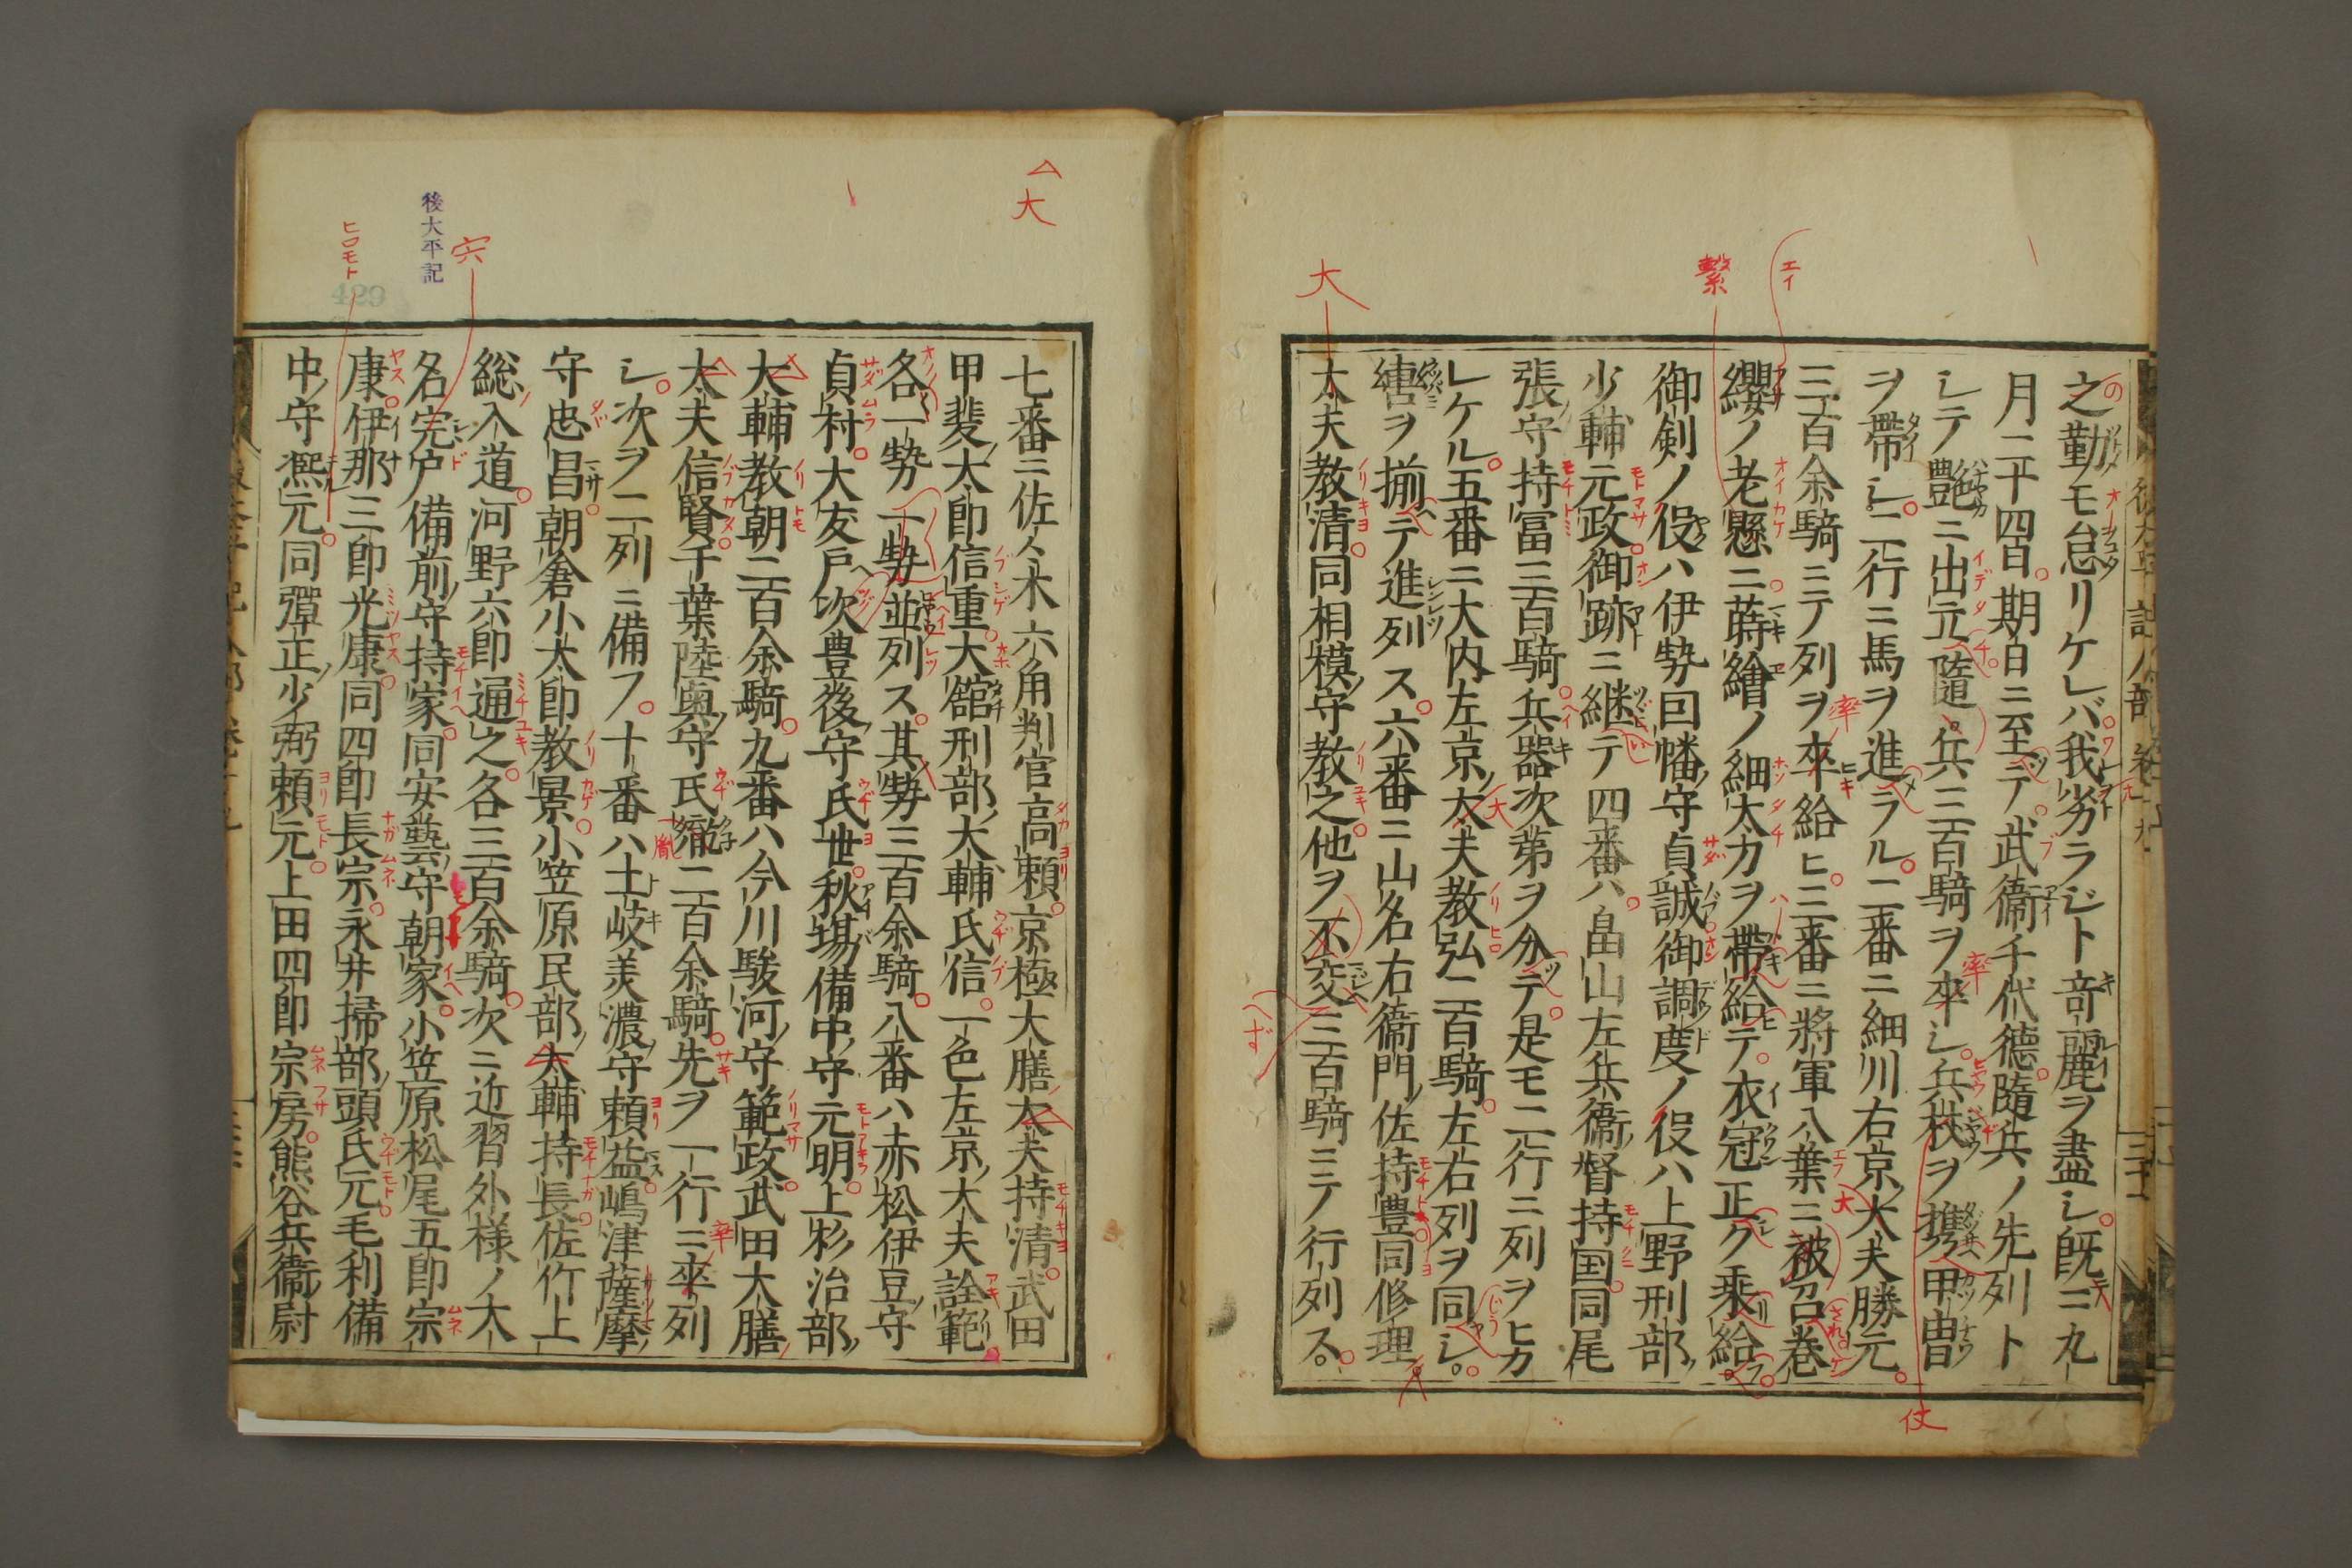 之勤モ怠リケレバ我劣ラジト竒麗ヲ盡シ既ニ九
月二十四日期日ニ至テ武衞千代德隨兵ノ先列ト
シテ艷ニ出元隨兵三百騎ヲ卒シ兵杖ヲ携甲曹
ヲ帶シ二行ニ馬ヲ進ラル二番ニ細川右京大夫勝元
三百余騎ニテ列ヲ卒給ヒ三番ニ將軍八葉ニ被召巻
纓ノ老懸ニ蒔繪ノ細太刀ヲ帶給テ衣冠正ク乘給
御剣ノ役ハ伊勢因幡守貞誠御調度ノ役ハ上野刑部
少輔元政御跡ニ継テ四番ハ畠山左兵衞督持国同尾
張守持冨三百騎兵器次第ヲ分テ是モ二行ニ列ヲヒカ
レケル五番ニ大内左京大夫教弘二百騎左右列ヲ同シ
轡ヲ揃テ進列ス六番ニ山名右衞門佐持豊同修理
太夫教清同相模守教之他ヲ不交三百騎ニテ行列ス
七番ニ佐々木六角判官高頼京極大膳太夫持清武田
甲斐太郎信重大舘刑部大輔氏信一色左京大夫詮範
各一勢一勢並列ス其勢三百余騎八番ハ赤松伊豆守
貞村大友戸次豊後守氏世秋場備中守元明上杉治部
大輔教朝二百余騎九番ハ今川駿河守範政武田大膳
太夫信賢千葉陸奥守氏㣲二百余騎先ヲ一行ニ卒列
シ次ヲ二列ニ備フ十番ハ土岐美濃守頼益嶋津薩摩
守忠昌朝倉小太郎教景小笠原民部太輔持長佐竹上
総入道河野六郎通之各三百余騎次ニ近習外様ノ大
名完戸備前守持家同安藝守朝家小笠原松尾五郎宗
康伊那三郎光康同四郎長宗永井掃部頭氏元毛利備
中守凞元同彈正少弼頼元上田四郎宗房熊谷兵衞尉
後大平記
429
大
繋
エイ
大
仗
宍
ヒロモト